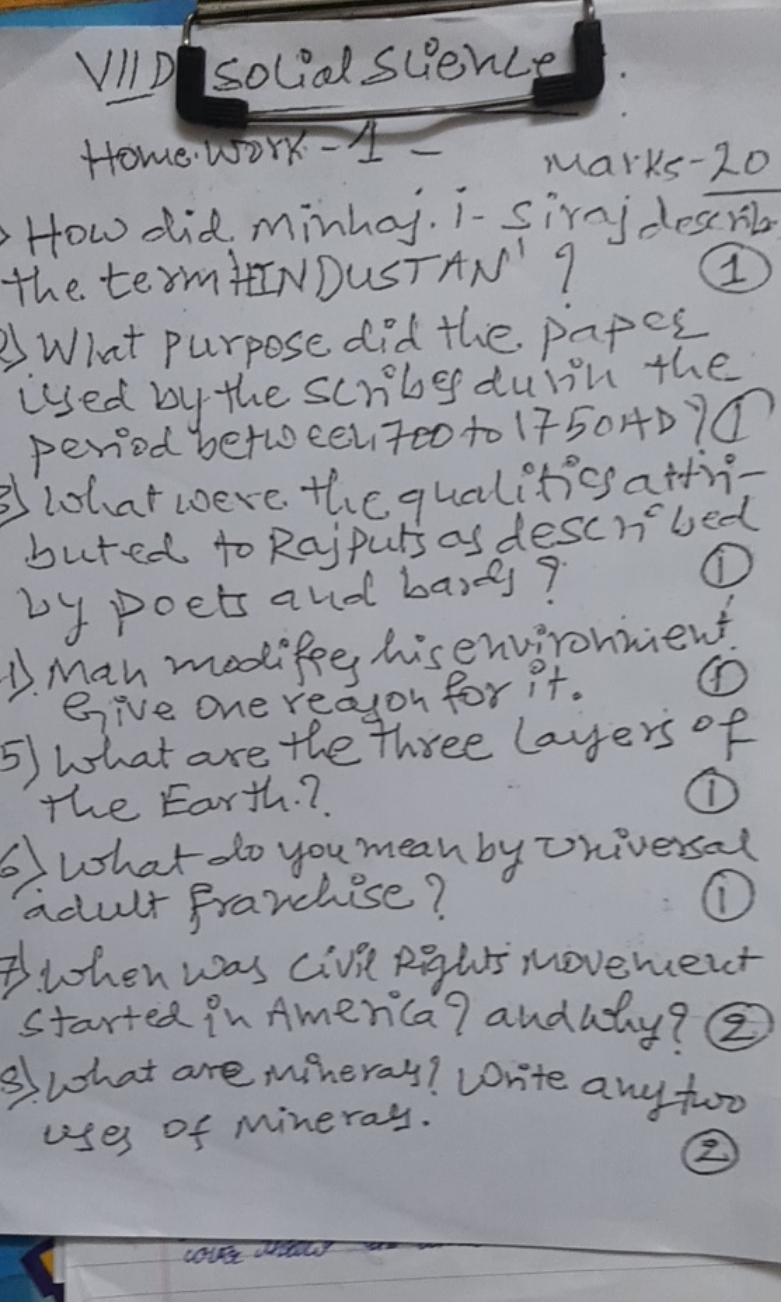 VII D Social Science.
Home.Work - 1 -
Marks-20
How did minhaj.i-Siraj describ
the term HINDUSTAN' ? ①
2) What purpose did the paper
used by the scribes durin the
period between 700 to 1750AD? ①
3) What were the qualities attri-
buted to Rajputs as described
by poets and bards? ①
1). Man modifies his environment.
Give one reason for it. ①
5) What are the three layers of
the Earth.? ①
6) What do you mean by universal
adult franchise? ①
7) When was Civil Rights Movement
started in America? and why? ②
8) What are Minerals? Write any two
uses of Minerals. ②
cover